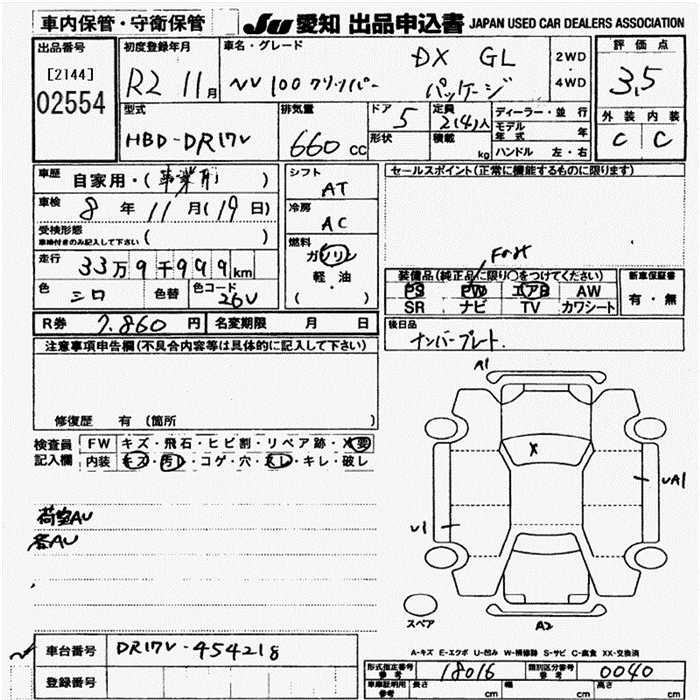 車内保管・守衛保管
JU 愛知 出品申込書 JAPAN USED CAR DEALERS ASSOCIATION
出品番号
[2144]
02554
初度登録年月
R2 11月
車名・グレード
NV100クリッパー DX GL
パッケージ
2WD
4WD
評価点
3.5
外装 内装
C C
型式
HBD-DR17V
排気量
660 cc
ドア 5
形状
定員 2(4)人
積載 kg
ディーラー・並行
モデル年式 年
ハンドル 左・右
車歴 自家用・(事業用)
車検 8年 11月(19日)
受検形態
車検付きのみ記入して下さい ( )
走行 33万9千999km
色 シロ 色替 色コード 26V
シフト
AT
冷房
AC
燃料
ガソリン
軽・油
( )
セールスポイント(正常に機能するものに限ります)
装備品(純正品に限り○をつけてください)
PS PW エアB AW
SR ナビ TV カワシート
新車保証書
有・無
R券 7,860円 名変期限 月 日
後日品
ナンバープレート.
注意事項申告欄(不具合内容等は具体的に記入して下さい)
修復歴 有 (箇所 )
検査員
記入欄
FW キズ・飛石・ヒビ割・リペア跡・X要
内装 キズ・汚レ・コゲ・穴・スレ・キレ・破レ
荷室AU
A1
X
UA1
U1
A2
スペア
A-キズ E-エクボ U-凹み W-補修跡 S-サビ C-腐食 XX-交換済
車台番号 DR17V-454218
登録番号
形式指定番号 参考 18016
類別区分番号 参考 0040
車庫証明用 参考 長さ cm 幅 cm 高さ cm